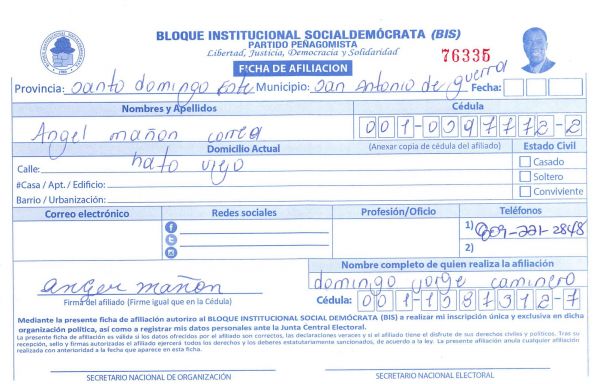 BLOQUE INSTITUCIONAL SOCIALDEMÓCRATA (BIS)
PARTIDO PEÑAGOMISTA
Libertad, Justicia, Democracia y Solidaridad
76335
FICHA DE AFILIACION
Provincia: Santo domingo este Municipio: San Antonio de guerra Fecha:
Nombres y Apellidos Cédula
Angel mañon correa 001-0397172-2
Domicilio Actual (Anexar copia de cédula del afiliado) Estado Civil
Calle: hato viejo Casado
#Casa / Apt. / Edificio: Soltero
Barrio / Urbanización: Conviviente
Correo electrónico Redes sociales Profesión/Oficio Teléfonos
1) 809-221-2848
2)
Nombre completo de quien realiza la afiliación
anger mañon domingo yorge caminero
Firma del afiliado (Firme igual que en la Cédula) Cédula: 001-1387312-7
Mediante la presente ficha de afiliación autorizo al BLOQUE INSTITUCIONAL SOCIAL DEMÓCRATA (BIS) a realizar mi inscripción única y exclusiva en dicha
organización política, así como a registrar mis datos personales ante la Junta Central Electoral.
La presente ficha de afiliación es válida si los datos ofrecidos por el afiliado son correctos, las declaraciones veraces y si el afiliado tiene el disfrute de sus derechos civiles y políticos. Tras su
recepción, sello y firmas autorizadas el afiliado ejercerá todos los derechos y los deberes estatutariamente sancionados, de acuerdo a la ley. La presente afiliación anula cualquier afiliación
realizada con anterioridad a la fecha que aparece en esta ficha.
SECRETARIO NACIONAL DE ORGANIZACIÓN SECRETARIO NACIONAL ELECTORAL